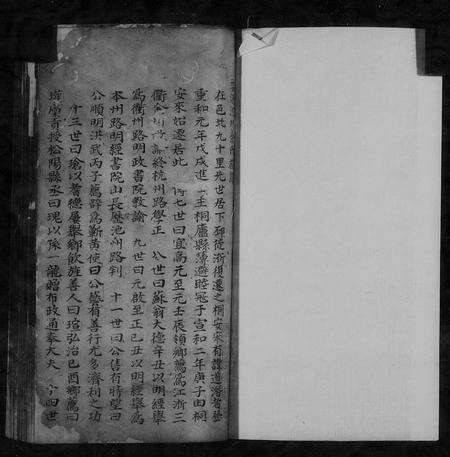 在邑北九十里先世居下邳後漸復遷之桐安宋有諱道潛者登
重和元年戊戌進士主桐廬縣簿避睦寇于宣和二年庚子由桐
安來始遷居此 七世曰宜高元至元壬辰領鄉薦爲江浙三
衢 終杭州路學正 八世曰蘇翁大德辛丑以明經舉
爲衢州路明政書院教諭 九世曰元啟至正己丑以明經舉爲
本州路明經書院山長歷池州路判 十一世曰公售有時望曰
公順明洪武丙子薦辟爲靳黄使曰公藝有善行尤多濟利之功
十三世曰瑜以耆德屢舉鄉飲旌善人曰瑄弘治己酉鄉薦曰
瑋廕膏授松陽縣丞曰瑰以孫一龍贈布政通奉大夫 十四世